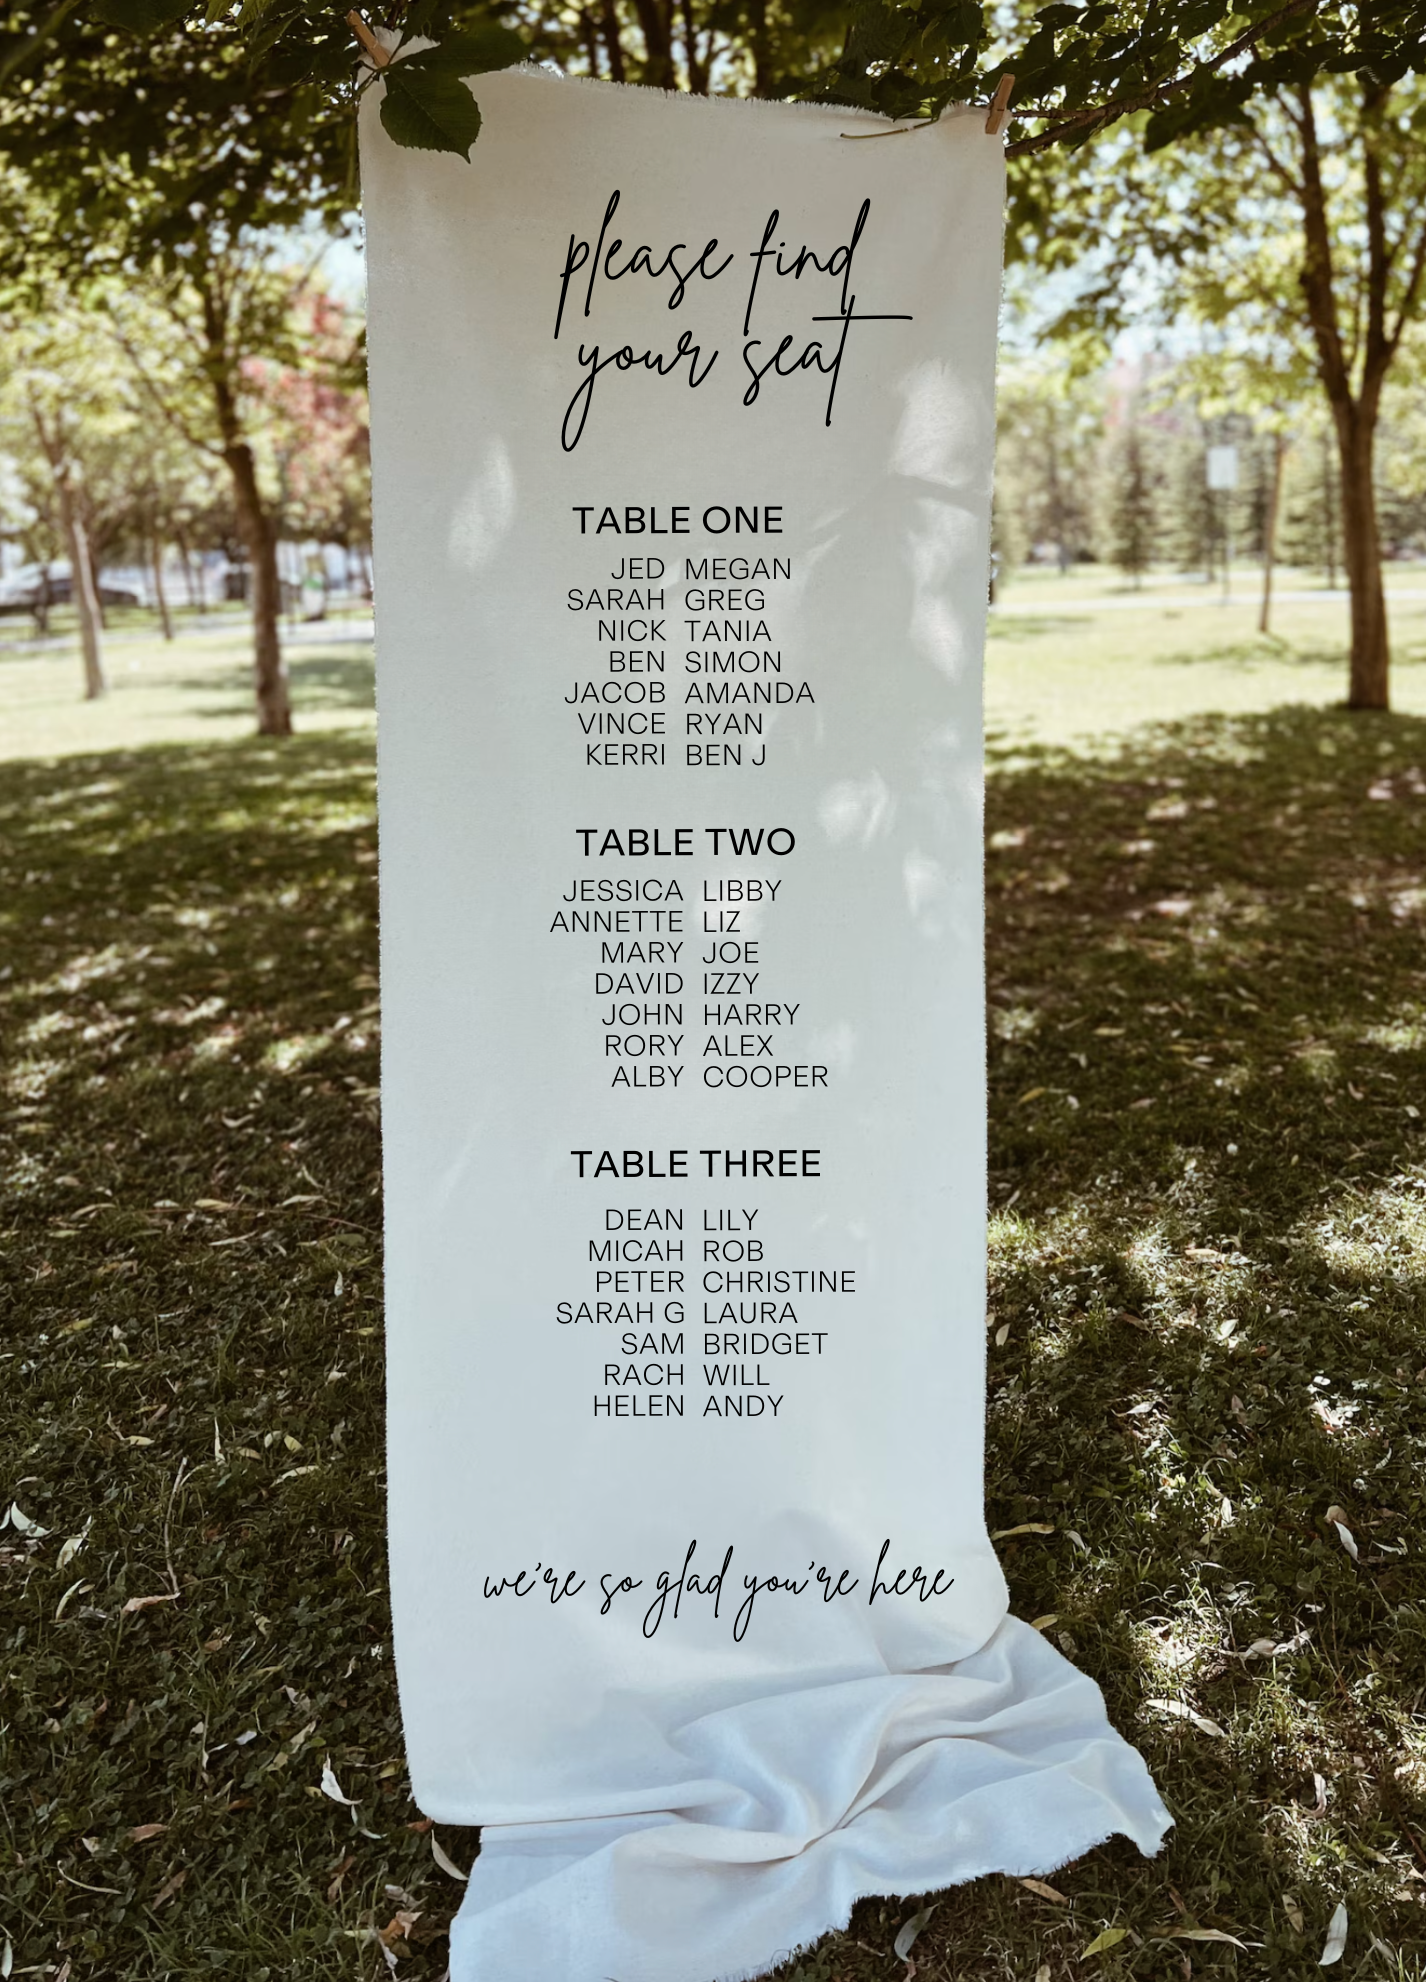 please find
your seat
TABLE ONE
JED MEGAN
SARAH GREG
NICK TANIA
BEN SIMON
JACOB AMANDA
VINCE RYAN
KERRI BEN J
TABLE TWO
JESSICA LIBBY
ANNETTE LIZ
MARY JOE
DAVID IZZY
JOHN HARRY
RORY ALEX
ALBY COOPER
TABLE THREE
DEAN LILY
MICAH ROB
PETER CHRISTINE
SARAH G LAURA
SAM BRIDGET
RACH WILL
HELEN ANDY
we're so glad you're here